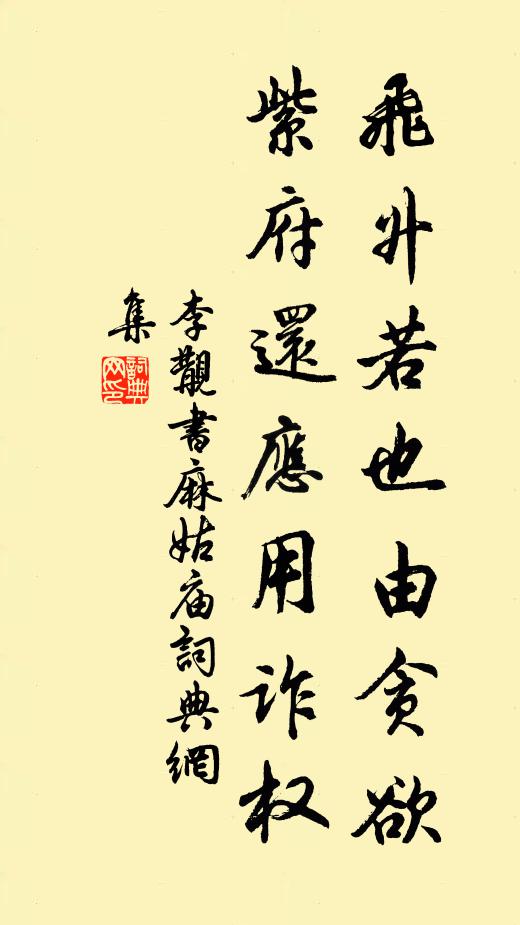 飛升若也由貪欲
紫府還應用诈权
李觀書麻姑庙詞典網
集
詞典
网印